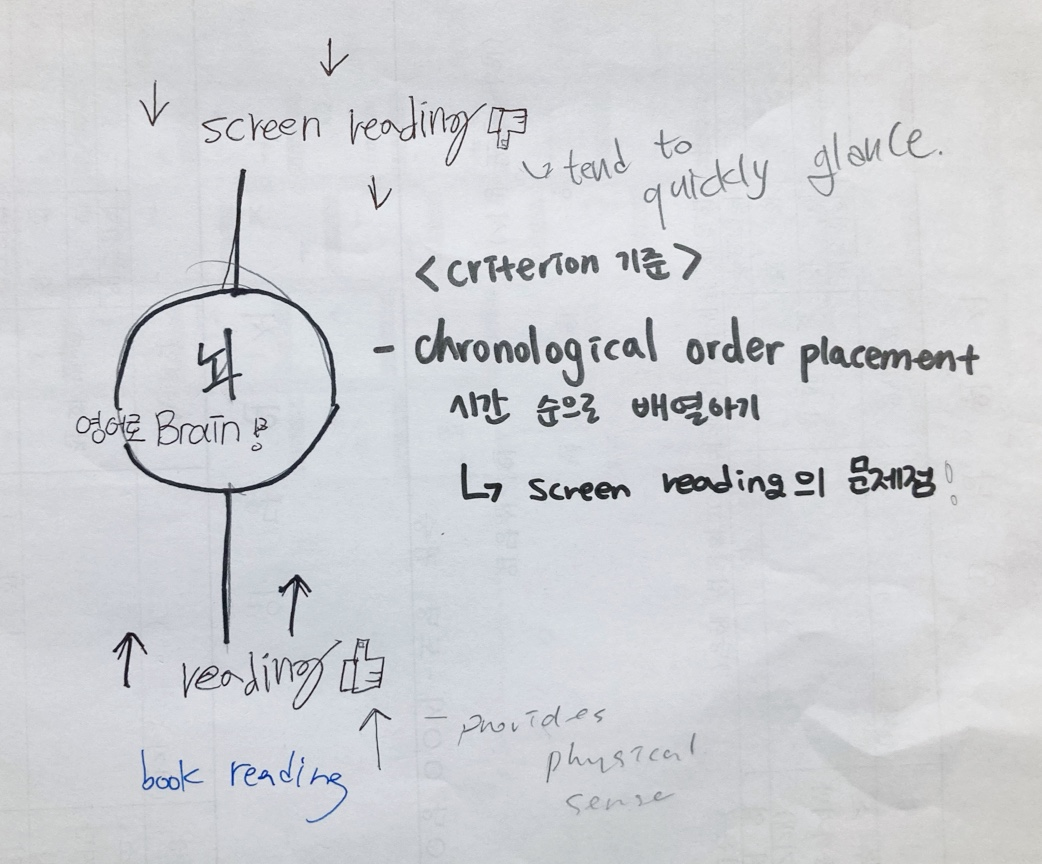 screen reading
tend to
quickly glance.
<criterion 기준>
- chronological order placement
시간 순으로 배열하기
screen reading의 문제점!
뇌
영어로 Brain!
reading
book reading
- provides
physical
sense